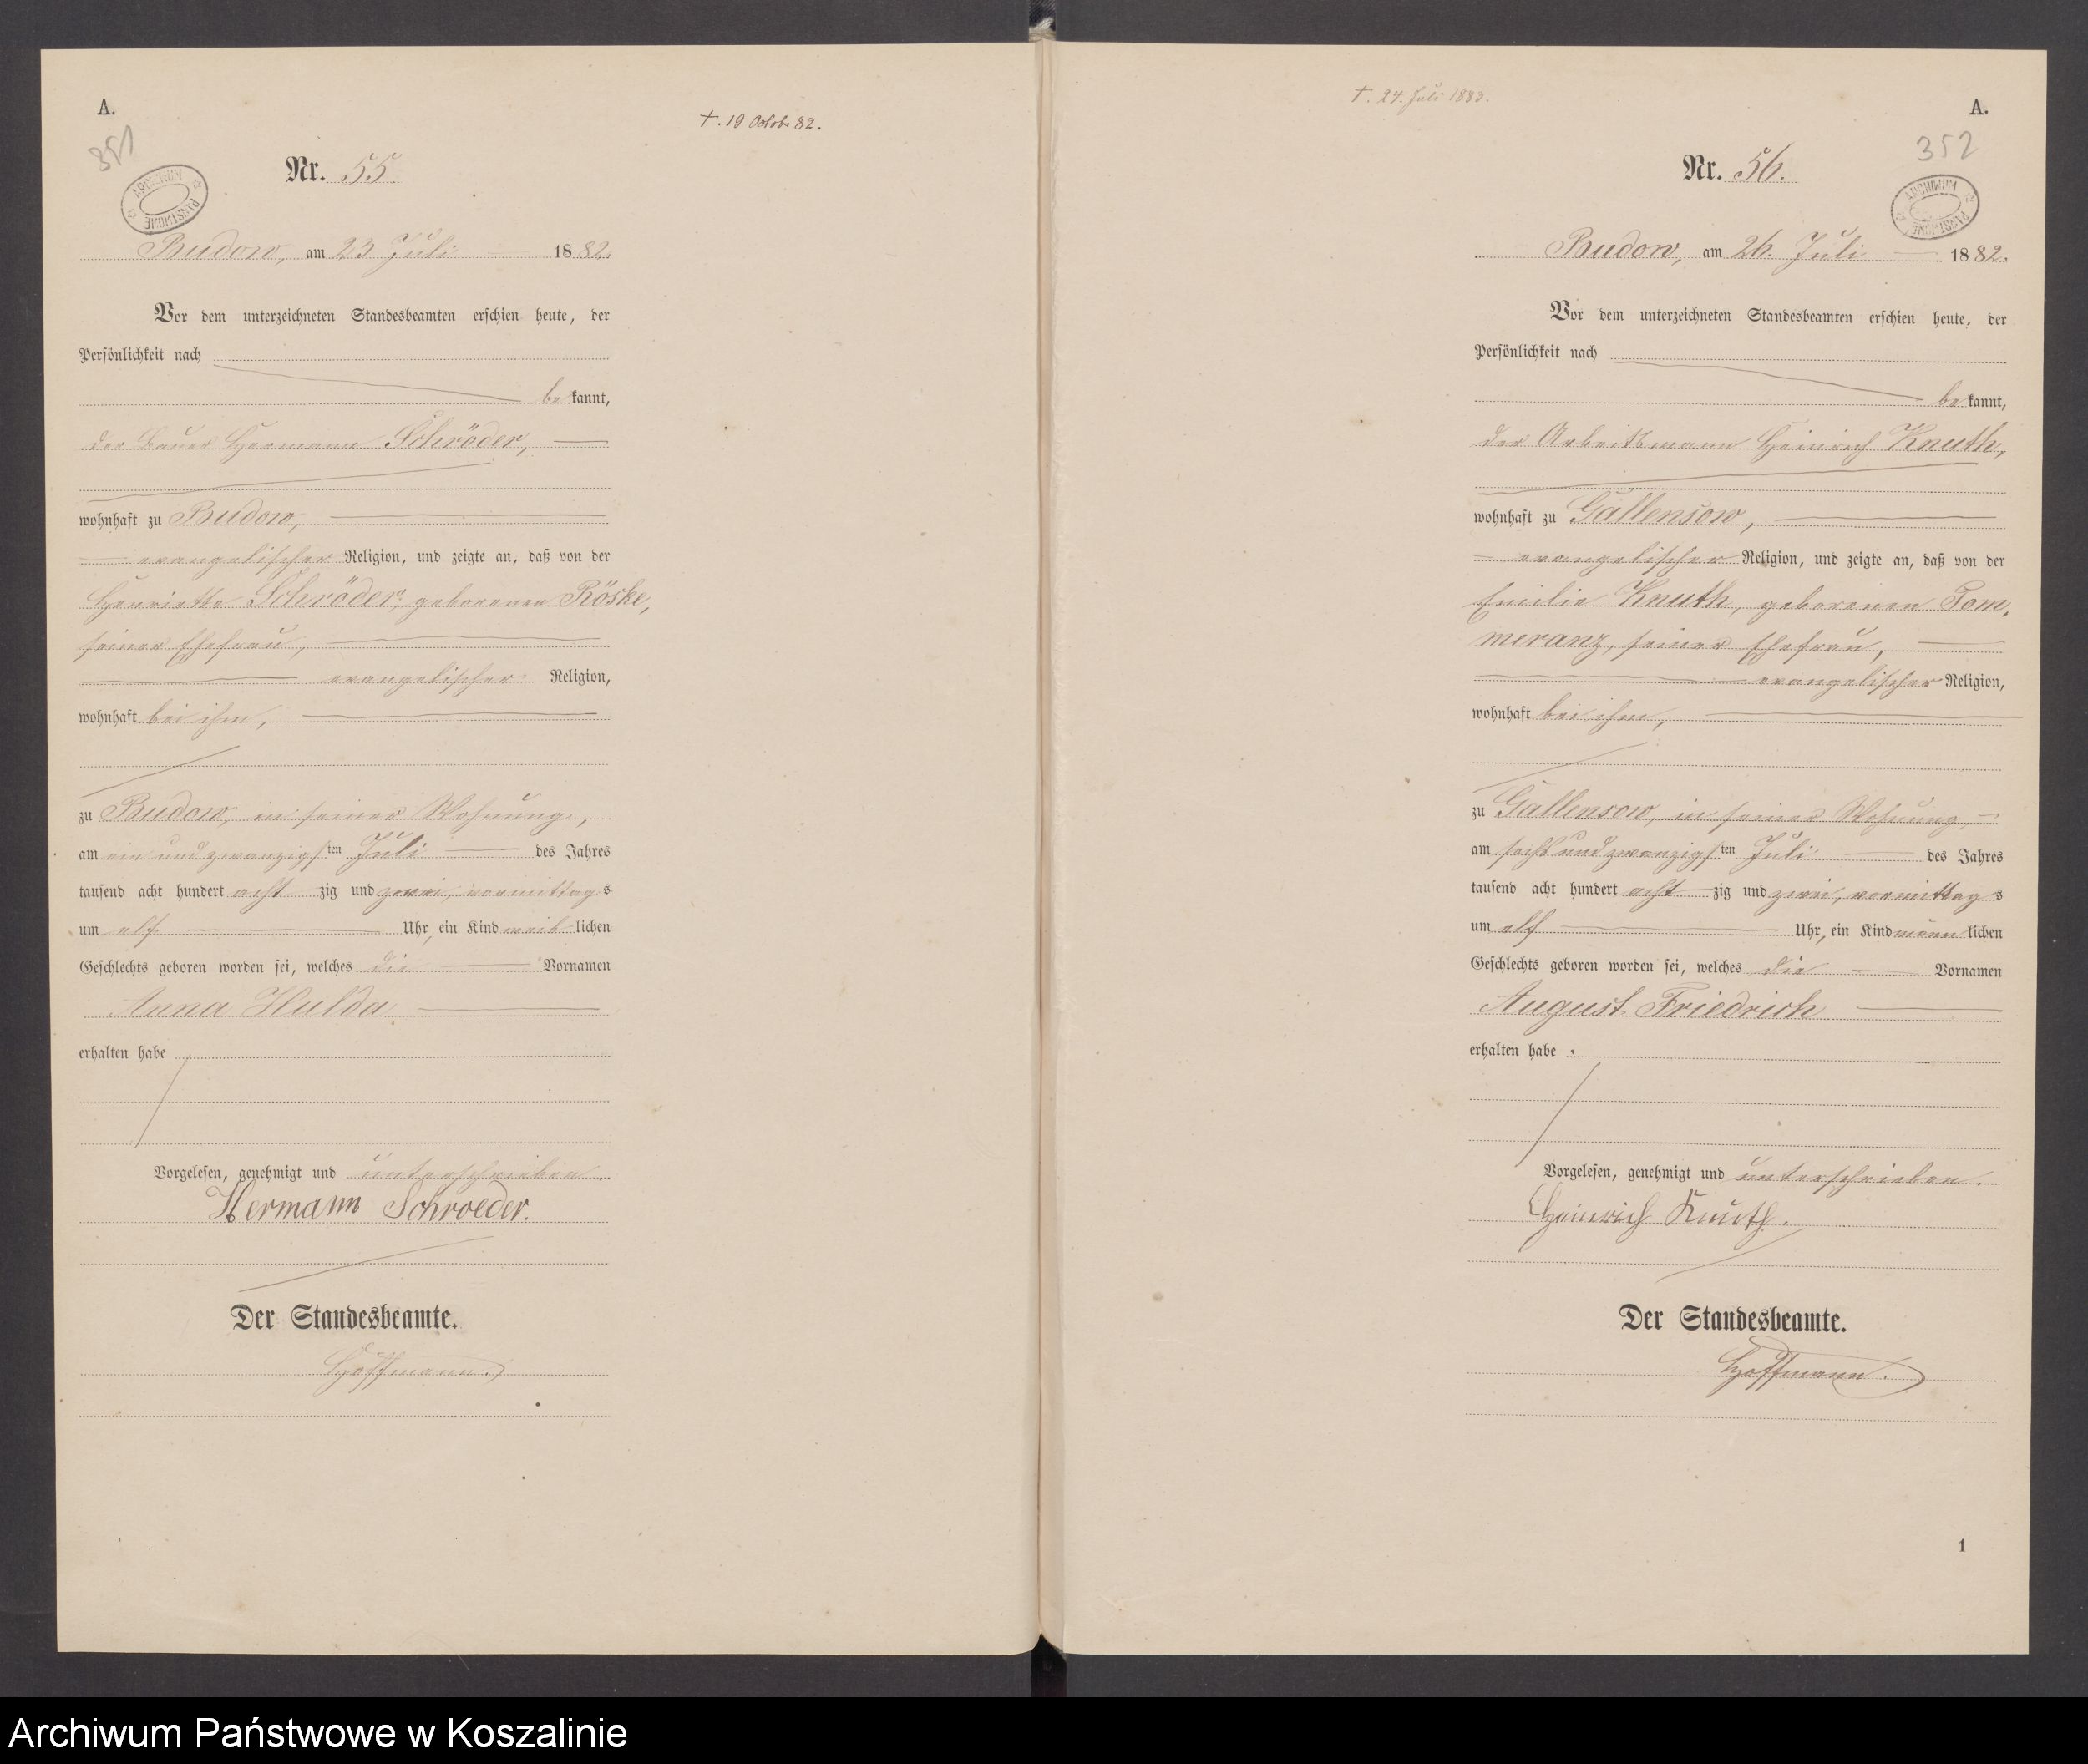 A.
351
+. 19 Octob. 82.
ARCHIWUM PAŃSTWOWE
Nr. 55.
Budow, am 23 Juli 1882.
Vor dem unterzeichneten Standesbeamten erschien heute, der
Persönlichkeit nach
bekannt,
der Bauer Hermann Schröder,
wohnhaft zu Budow,
evangelischer Religion, und zeigte an, daß von der
Henriette Schröder, geborenen Röske,
seiner Ehefrau,
evangelischer Religion,
wohnhaft bei ihm,
zu Budow, in seiner Wohnung,
am ein und zwanzigsten Juli des Jahres
tausend acht hundert achtzig und zwei, vormittags
um elf Uhr, ein Kind weiblichen
Geschlechts geboren worden sei, welches die Vornamen
Anna Hulda
erhalten habe
Vorgelesen, genehmigt und unterschrieben.
Hermann Schroeder.
Der Standesbeamte.
Hoffmann.
+. 24. Juli 1883.
A.
352
ARCHIWUM PAŃSTWOWE
Nr. 56.
Budow, am 26. Juli 1882.
Vor dem unterzeichneten Standesbeamten erschien heute, der
Persönlichkeit nach
bekannt,
der Arbeitsmann Heinrich Knuth,
wohnhaft zu Gallensow,
evangelischer Religion, und zeigte an, daß von der
Emilie Knuth, geborenen Pom,
meranz, seiner Ehefrau,
evangelischer Religion,
wohnhaft bei ihm,
zu Gallensow, in seiner Wohnung,
am sechs und zwanzigsten Juli des Jahres
tausend acht hundert achtzig und zwei, vormittags
um elf Uhr, ein Kind männlichen
Geschlechts geboren worden sei, welches die Vornamen
August Friedrich
erhalten habe.
Vorgelesen, genehmigt und unterschrieben.
Heinrich Knuth.
Der Standesbeamte.
Hoffmann.
1
Archiwum Państwowe w Koszalinie